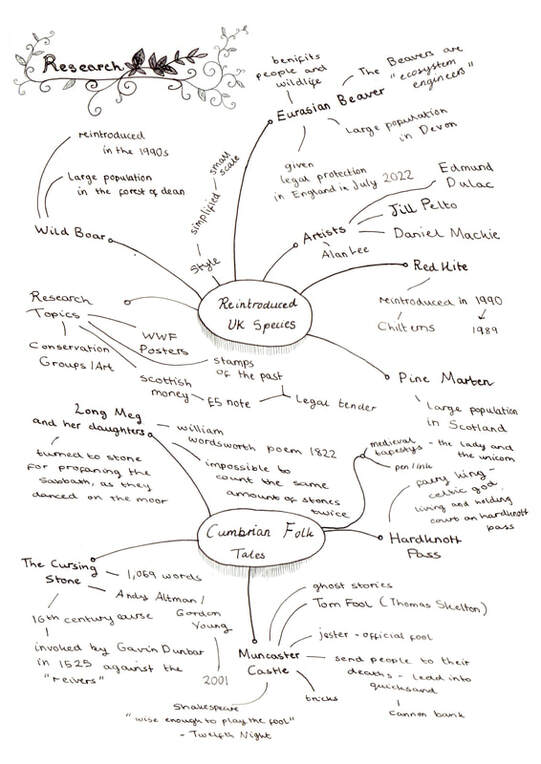 Research
benifits
people and
wildlife
The Beavers are
"ecosystem
engineers"
Eurasian Beaver
Large population
in Devon
given
legal protection
in England in July 2022
reintroduced
in the 1990s
Large population
in the forest of dean
Wild Boar
Style
simplified
small
scale
Artists
Edmund
Dulac
Jill Pelto
Daniel Mackie
Alan Lee
Red Kite
reintroduced in 1990
Chilterns
1989
Reintroduced
UK Species
Research
Topics
WWF
Posters
Conservation
Groups / Art
stamps
of the past
Scottish
money
£5 note
Legal tender
Pine Marten
Large population
in Scotland
Long Meg
and her daughters
william
wordsworth poem 1822
turned to stone
for profaning the
Sabbath, as they
danced on the moor
impossible to
count the same
amount of stones
twice
medieval
tapestys
- the lady and
the unicorn
pen / ink
fairy king -
celtic god
living and holding
court on hardknott
pass
Hardknott
Pass
Cumbrian Folk
Tales
The Cursing
Stone
1,069 words
Andy Altman /
Gordon
Young
2001
16th century curse
invoked by Gavin Dunbar
in 1525 against the
"reivers"
Muncaster
Castle
ghost stories
Tom Fool (Thomas Skelton)
jester - official fool
send people to their
deaths - lead into
quicksand
Cannon bank
tricks
Shakespeare
"wise enough to play the fool"
- Twelfth Night